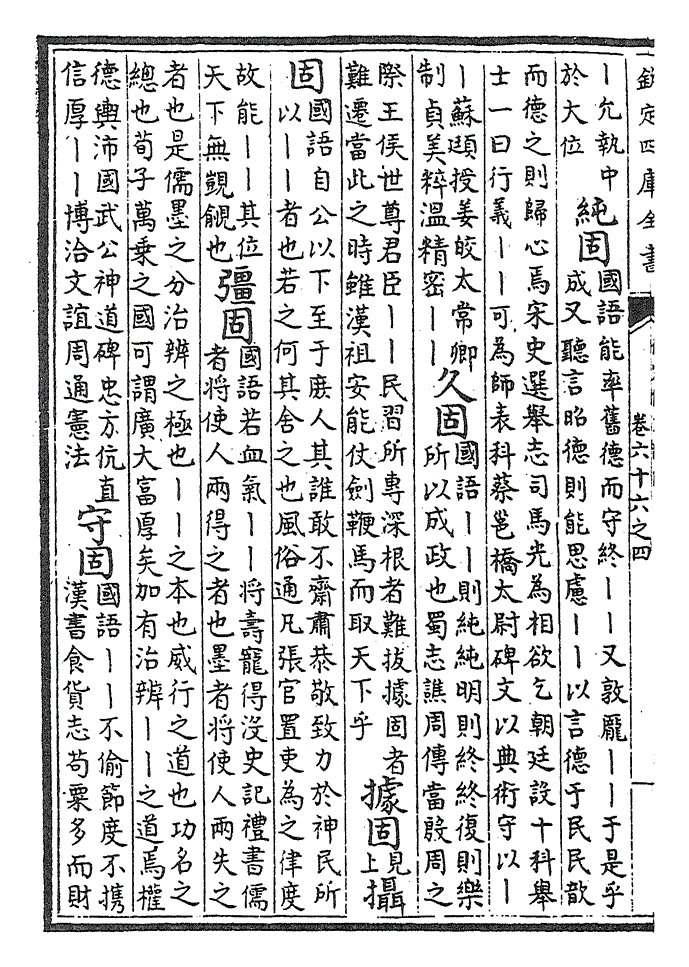 欽定四庫全書
卷六十六之四
｜允執中
於大位
純固
國語能率舊德而守終｜｜又敦龐｜｜于是乎
成又聽言昭德則能思慮｜｜以言德于民民歆
而德之則歸心焉宋史選舉志司馬光為相欲乞朝廷設十科舉
士一曰行義｜｜可為師表科蔡邕橋太尉碑文以典術守以｜
｜蘇頲授姜皎太常卿
制貞美粹溫精密｜｜
久固
國語｜｜則純純明則終終復則樂
所以成政也蜀志譙周傳當殷周之
際王侯世尊君臣｜｜民習所專深根者難拔據固者
難遷當此之時雖漢祖安能仗劍鞭馬而取天下乎
據固
見
上
攝
固
國語自公以下至于庶人其誰敢不齋肅恭敬致力於神民所
以｜｜者也若之何其舍之也風俗通凡張官置吏為之律度
故能｜｜其位
天下無覬覦也
彊固
國語若血氣｜｜將壽寵得沒史記禮書儒
者將使人兩得之者也墨者將使人兩失之
者也是儒墨之分治辨之極也｜｜之本也威行之道也功名之
總也荀子萬乘之國可謂廣大富厚矣加有治辨｜｜之道焉權
德輿沛國武公神道碑忠方伉直
信厚｜｜博洽文誼周通憲法
守固
國語｜｜不偷節度不携
漢書食貨志苟粟多而財